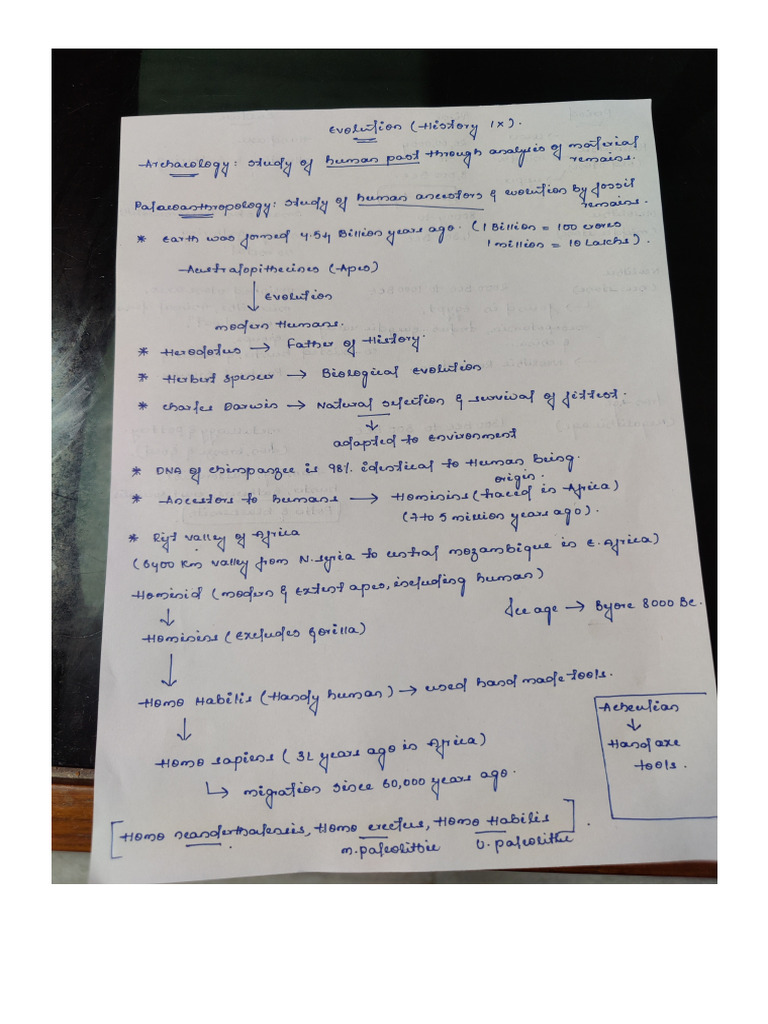 Evolution (History IX).
Archaeology: Study of human past through analysis of material
remains.
Palaeoanthropology: Study of human ancestors & evolution by fossil
remains.
* Earth was formed 4.54 Billion years ago. (1 Billion = 100 crores
1 million = 10 Lacks).
Australopithecines (Apes)
↓ Evolution
modern Humans.
* Herodotus → Father of History.
* Herbert Spencer → Biological Evolution
* Charles Darwin → Natural selection & survival of fittest.
↓
adapted to Environment
* DNA of chimpanzee is 98% identical to Human being.
* Ancestors to humans → Hominins (traced in Africa)
origin.
(7 to 5 million years ago).
* Rift valley of Africa
(6400 km valley from N. Syria to central mozambique in E. Africa)
Hominid (modern & Extent apes, including human)
↓
Ice age → Before 8000 BC.
Hominins (Excludes Gorilla)
↓
Homo Habilis (Handy human) → used hand made tools.
↓
Homo sapiens (3L years ago in Africa)
↳ migration since 60,000 years ago.
Acheulian
↓
Hand axe
tools.
[Homo neanderthalensis, Homo erectus, Homo Habilis].
m. paleolithic U. paleolithic